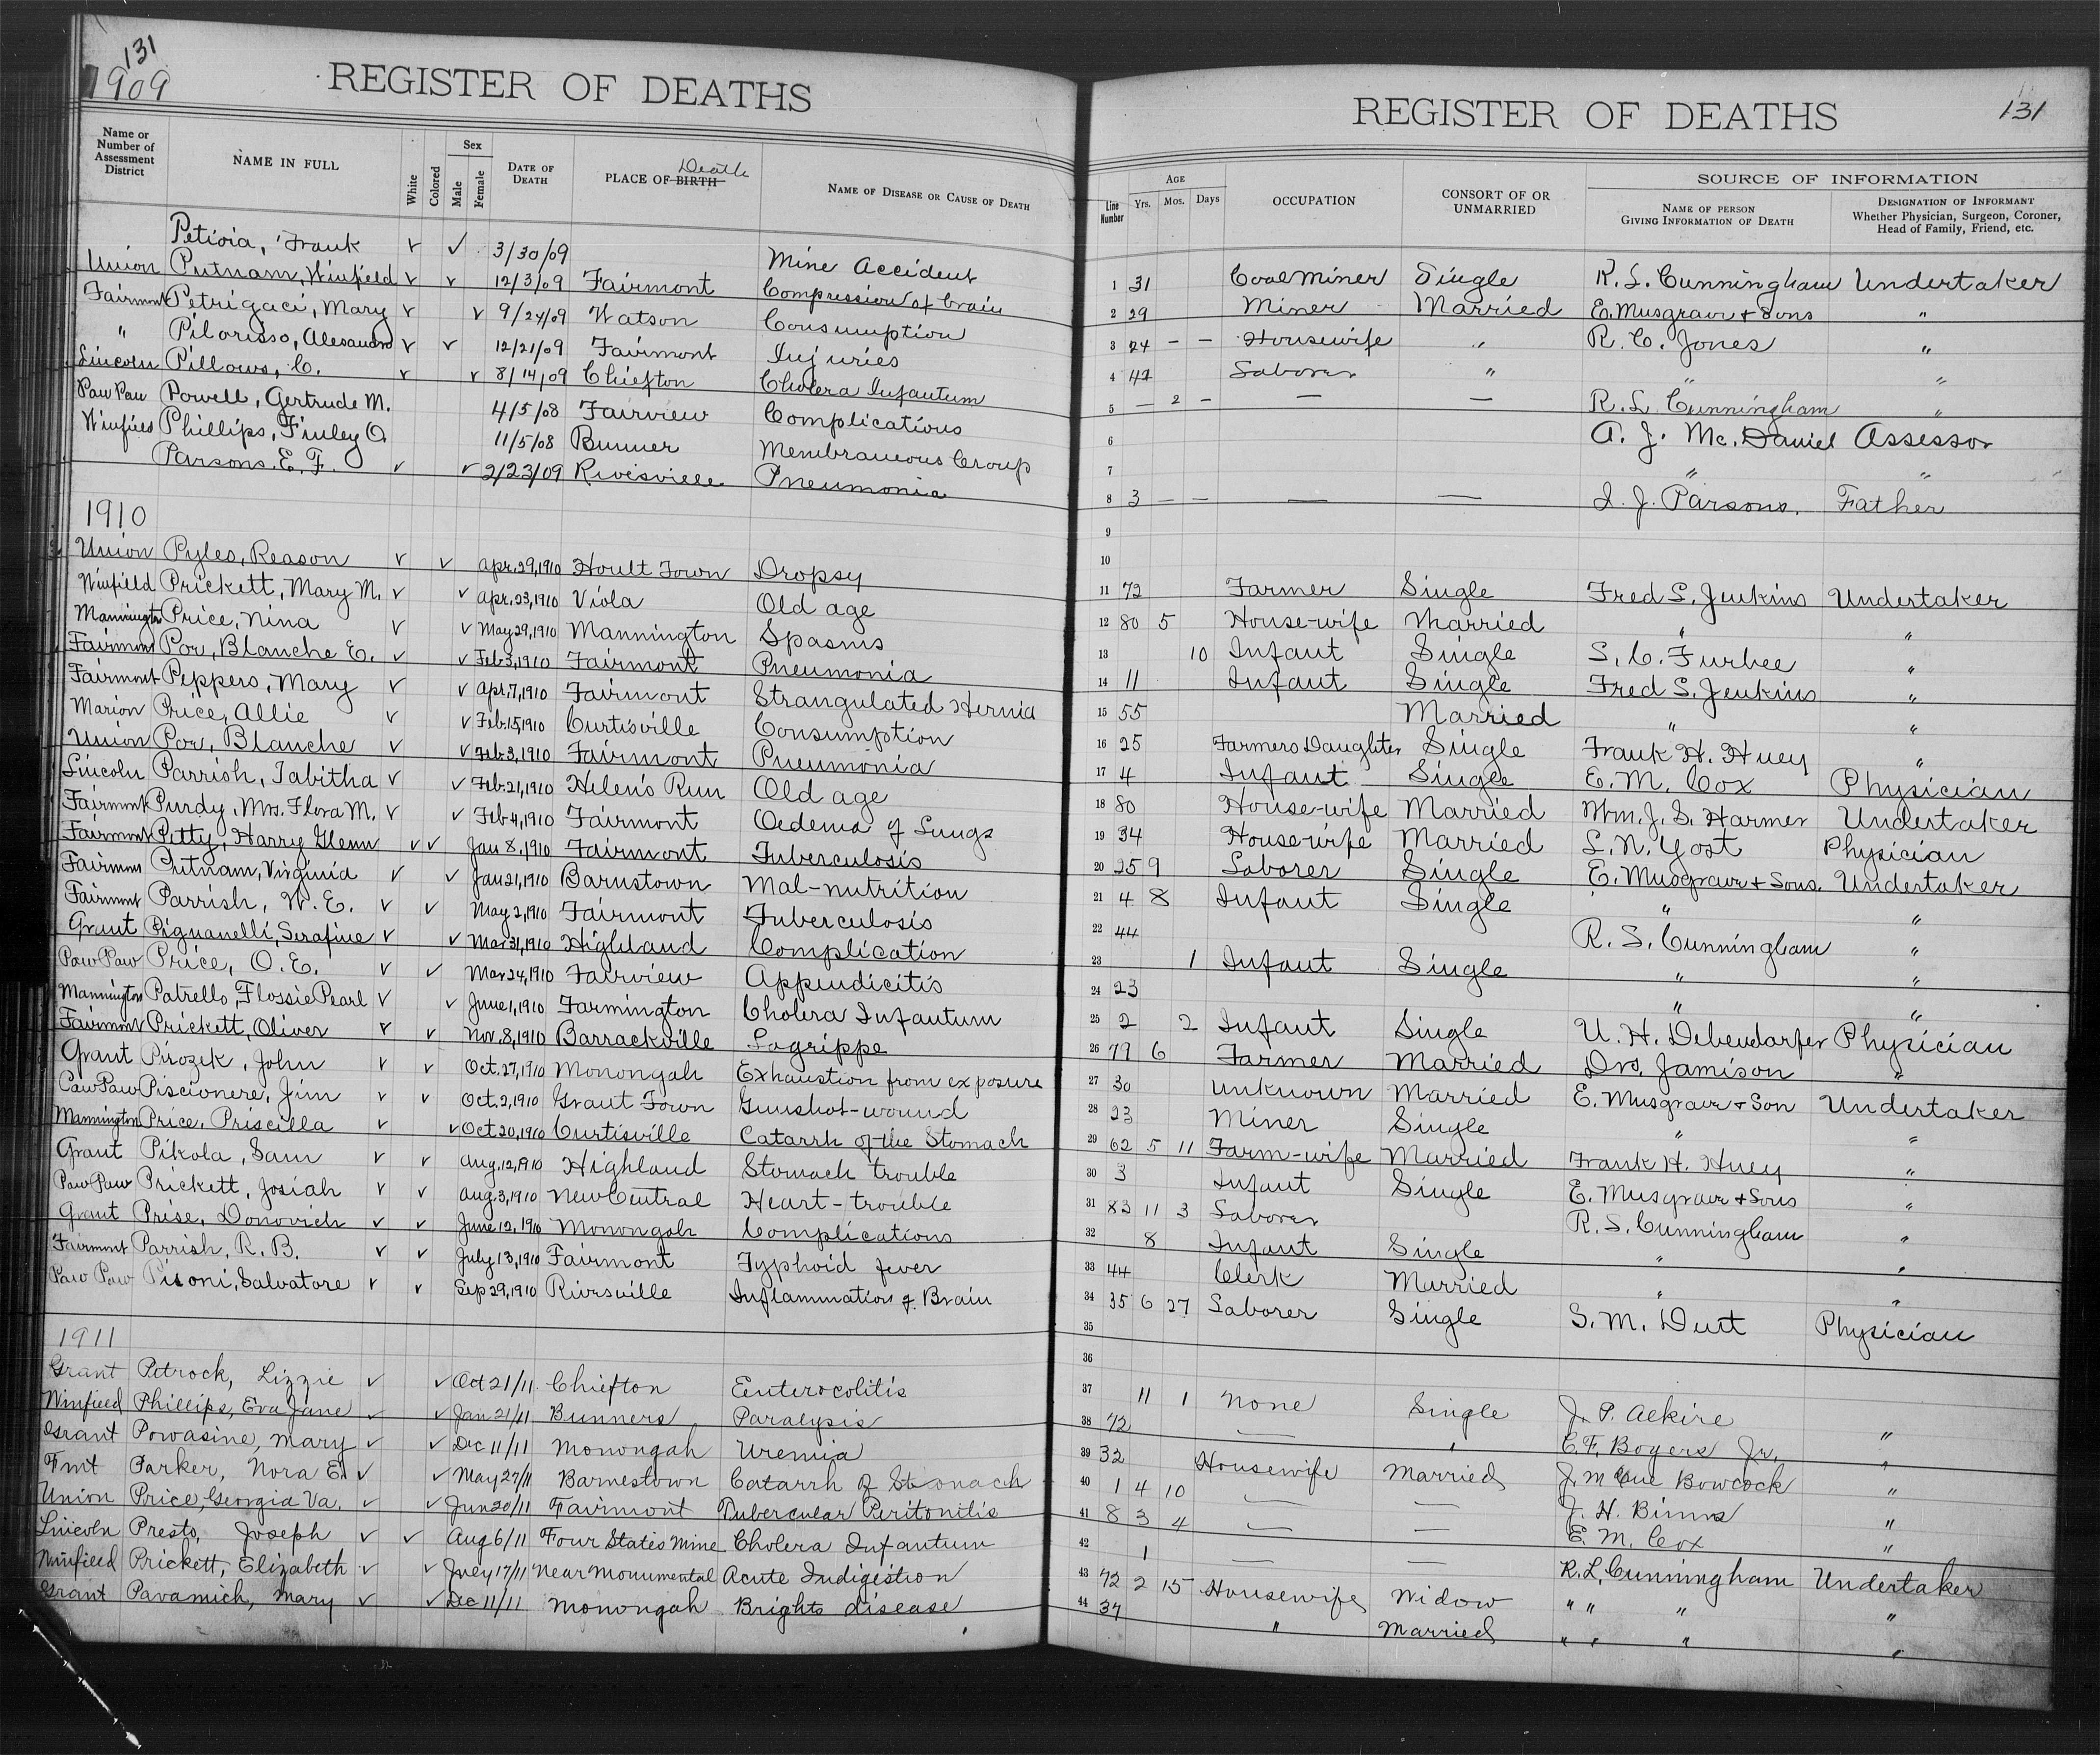 131
1909
REGISTER OF DEATHS
Name or Number of Assessment District
NAME IN FULL
White
Colored
Sex
Male
Female
DATE OF DEATH
PLACE OF BIRTH Death
NAME OF DISEASE OR CAUSE OF DEATH
Frank 3/30/09 Mine Accident
Union Putnam, Winfield 12/3/09 Fairmont Compression of brain
Fairmont Petrigaci, Mary 9/24/09 Watson Consumption
" 12/21/09 Fairmont Injuries
Lincoln Pillows, C. 8/14/09 Chiefton Cholera Infantum
Paw Paw Powell, Gertrude M. 4/5/08 Fairview Complications
Winfield Phillips, Finley O. 11/5/08 Bunner Membraneous Croup
Parsons, E. F. 2/23/09 Rivesville Pneumonia
1910
Union Pyles, Reason Apr. 29, 1910 Hoult Town Dropsy
Winfield Prickett, Mary M. Apr. 23, 1910 Viola Old age
Mannington Price, Nina May 29, 1910 Mannington Spasms
Fairmont Por, Blanche E. Feb 3, 1910 Fairmont Pneumonia
Fairmont Peppers, Mary Apr. 7, 1910 Fairmont Strangulated Hernia
Marion Price, Allie Feb. 15, 1910 Curtisville Consumption
Union Por, Blanche Feb. 3, 1910 Fairmont Pneumonia
Lincoln Parrish, Tabitha Feb. 21, 1910 Helen's Run Old age
Fairmont Purdy, Mrs. Flora M. Feb 4, 1910 Fairmont Oedema of Lungs
Fairmont Petty, Harry Glenn Jan 8, 1910 Fairmont Tuberculosis
Fairmont Putnam, Virginia Jan 21, 1910 Barnstown Mal-nutrition
Fairmont Parrish, W. E. May 2, 1910 Fairmont Tuberculosis
Grant Pignanelli, Serafine Mar 31, 1910 Highland Complication
Paw Paw Price, O. E. Mar 24, 1910 Fairview Appendicitis
Mannington Patrello, Flossie Pearl June 1, 1910 Farmington Cholera Infantum
Fairmont Prickett, Oliver Nov. 8, 1910 Barrackville Lagrippe
Grant Pirozek, John Oct. 27, 1910 Monongah Exhaustion from exposure
Paw Paw Piscionere, Jim Oct. 2, 1910 Grant Town Gunshot-wound
Mannington Price, Priscilla Oct 20, 1910 Curtisville Catarrh of the Stomach
Grant Pikola, Sam Aug. 12, 1910 Highland Stomach trouble
Paw Paw Prickett, Josiah Aug. 3, 1910 New Central Heart-trouble
Grant Prise, Donovich June 12, 1910 Monongah Complications
Fairmont Parrish, R. B. July 13, 1910 Fairmont Typhoid fever
Paw Paw Salvatore Sep 29, 1910 Rivesville Inflammation of Brain
1911
Grant Petrock, Lizzie Oct 21/11 Chiefton Eenterocolitis
Winfield Phillips, Eva Jane Jan 21/11 Bunners Paralysis
Grant Powasine, Mary Dec 11/11 Monongah Uremia
Fmt Parker, Nora E. May 27/11 Barnestown Catarrh of Stomach
Union Price, Georgia Va. Jun 20/11 Fairmont Tubercular Peritonitis
Lincoln Presto, Joseph Aug 6/11 Four States Mine Cholera Infantum
Winfield Prickett, Elizabeth July 17/11 Near Monumental Acute Indigestion
Grant Pavamich, Mary Dec 11/11 Monongah Brights disease
REGISTER OF DEATHS
131
Line Number
AGE
Yrs. Mos. Days
OCCUPATION
CONSORT OF OR UNMARRIED
SOURCE OF INFORMATION
NAME OF PERSON GIVING INFORMATION OF DEATH
DESIGNATION OF INFORMANT
Whether Physician, Surgeon, Coroner, Head of Family, Friend, etc.
1 31 Coal Miner Single R. L. Cunningham Undertaker
2 29 Miner Married E. Musgrave + Sons "
3 24 — — Housewife " R. C. Jones "
4 42 Laborer " " "
5 — 2 — — — R. L. Cunningham "
6 A. J. Mc. Daniel Assessor
7 " "
8 3 — — — — J. Parsons. Father
9
10
11 72 Farmer Single Fred S. Jenkins Undertaker
12 80 5 House-wife Married " "
13 10 Infant Single S. C. Furbee "
14 11 Infant Single Fred S. Jenkins "
15 55 Married " "
16 25 Farmers Daughter Single Frank H. Huey "
17 4 Infant Single E. M. Cox Physician
18 80 House-wife Married Wm. J. S. Harmer Undertaker
19 34 House-wife Married L. N. Yost Physician
20 25 9 Laborer Single E. Musgrave + Sons. Undertaker
21 4 8 Infant Single " "
22 44 R. S. Cunningham "
23 1 Infant Single " "
24 23 " "
25 2 2 Infant Single U. H. Debendarfer Physician
26 79 6 Farmer Married Drs. Jamison "
27 30 unknown Married E. Musgrave + Son Undertaker
28 23 Miner Single " "
29 62 5 11 Farm-wife Married Frank H. Huey "
30 3 Infant Single E. Musgrave + Sons "
31 83 11 3 Laborer R. S. Cunningham "
32 8 Infant Single " "
33 44 Clerk Married " "
34 35 6 27 Laborer Single S. M. Physician
35
36
37 11 1 None Single J. P. Alkire "
38 72 — " C. F. Bogers Jr. "
39 32 Housewife Married J. M Bowcock "
40 1 4 10 — — J. H. Binns "
41 8 3 4 — — E. M. Cox "
42 1 — — R. L. Cunningham Undertaker
43 72 2 15 Housewife Widow " " " "
44 37 " Married " " " "